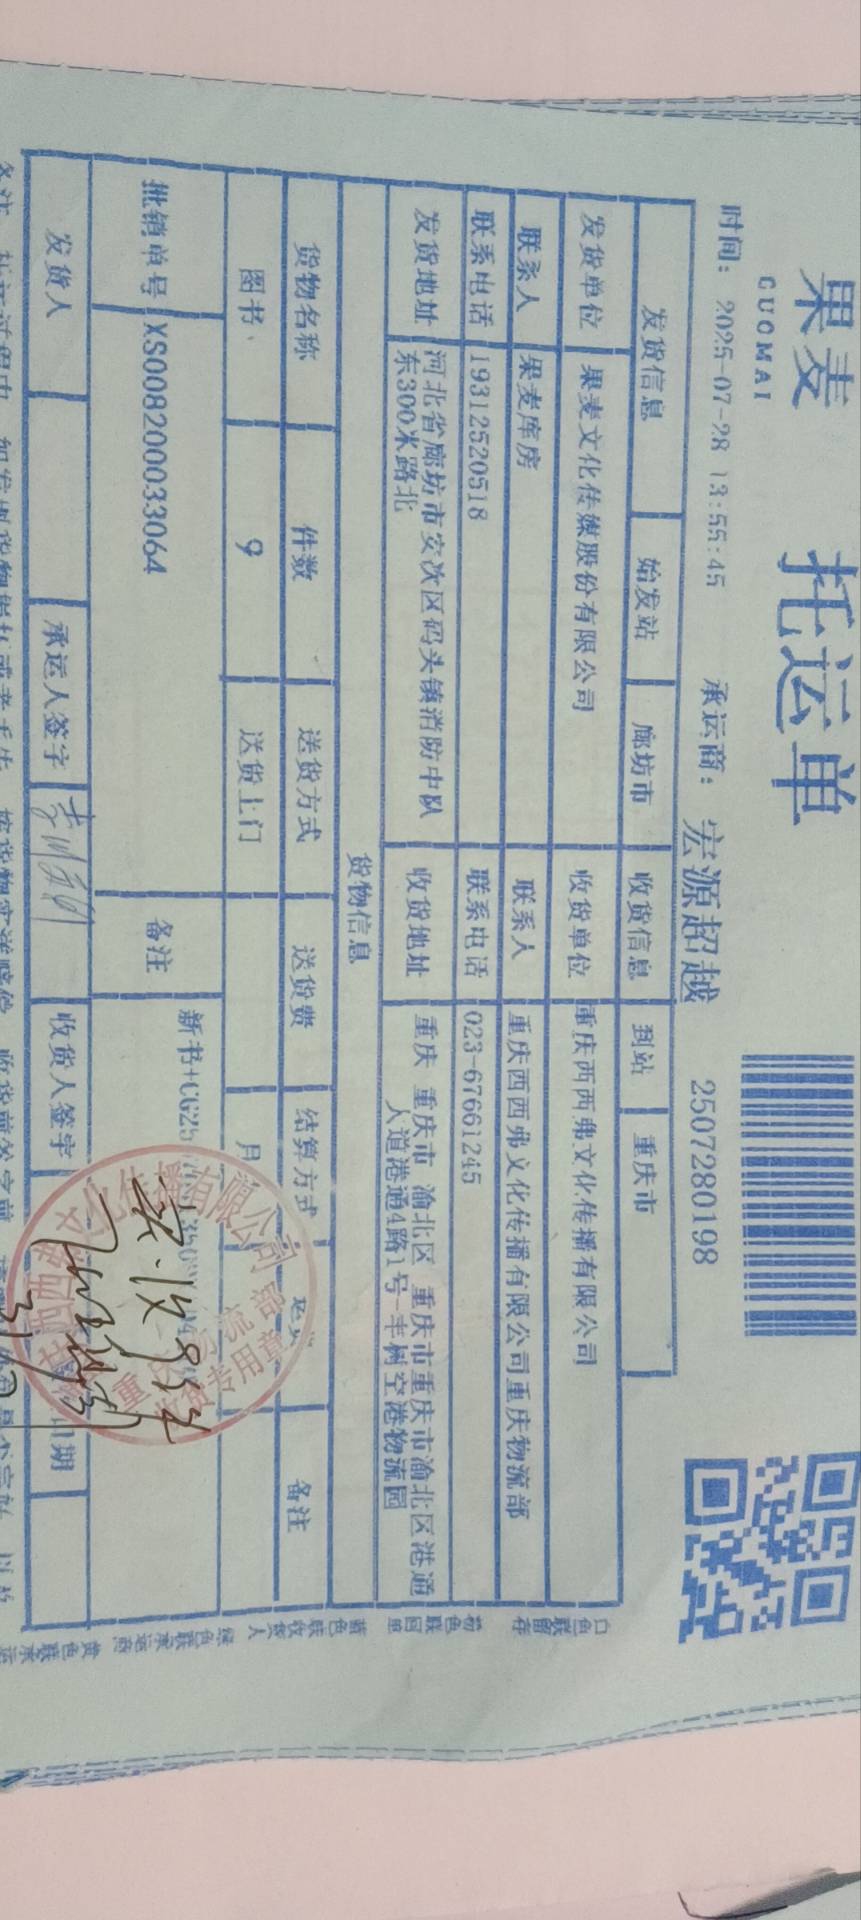 果麦
GUOMAI
托运单
时间：2025-07-28 13:55:45 承运商：宏源超越 2507280198
发货信息 始发站 廊坊市 收货信息 到站 重庆市
发货单位 果麦文化传媒股份有限公司 收货单位 重庆西西弗文化传播有限公司
联系人 果麦库房 联系人 重庆西西弗文化传播有限公司重庆物流部
联系电话 19312520518 联系电话 023-67661245
发货地址 河北省廊坊市安次区码头镇消防中队
东300米路北
收货地址 重庆 重庆市 渝北区 重庆市重庆市渝北区港通
人道港通4路1号-丰树空港物流园
货物信息
货物名称 件数 送货方式 送货费 结算方式 备注
图书 9 送货上门 月
批销单号 XS008200033064 备注 新书+CG25
发货人 承运人签字 收货人签字 日期
实收9件
白色联留存 粉色联回单 蓝色联收货人 绿色联承运商 黄色联承运
西西弗文化传播有限公司
重庆物流部
收货专用章